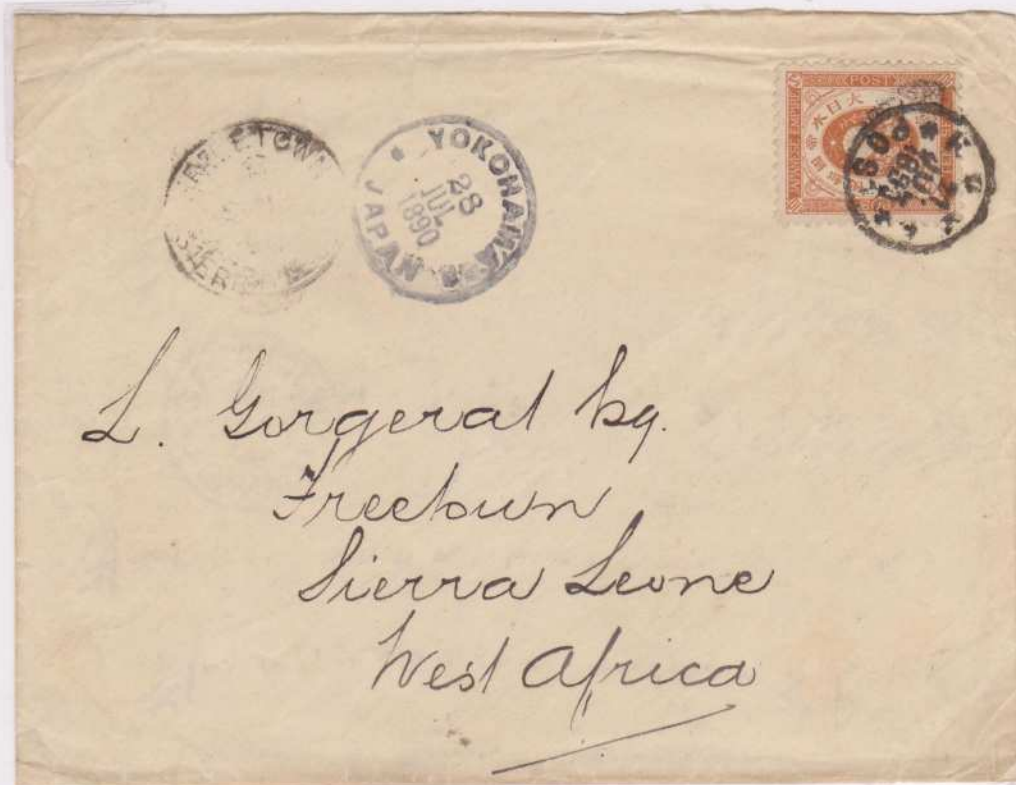 FREETOWN
SIERRA
YOKOHAMA
28
JUL
1890
JAPAN
POST
大日本帝
L. Gorgerat Esq.
Freetown
Sierra Leone
West Africa